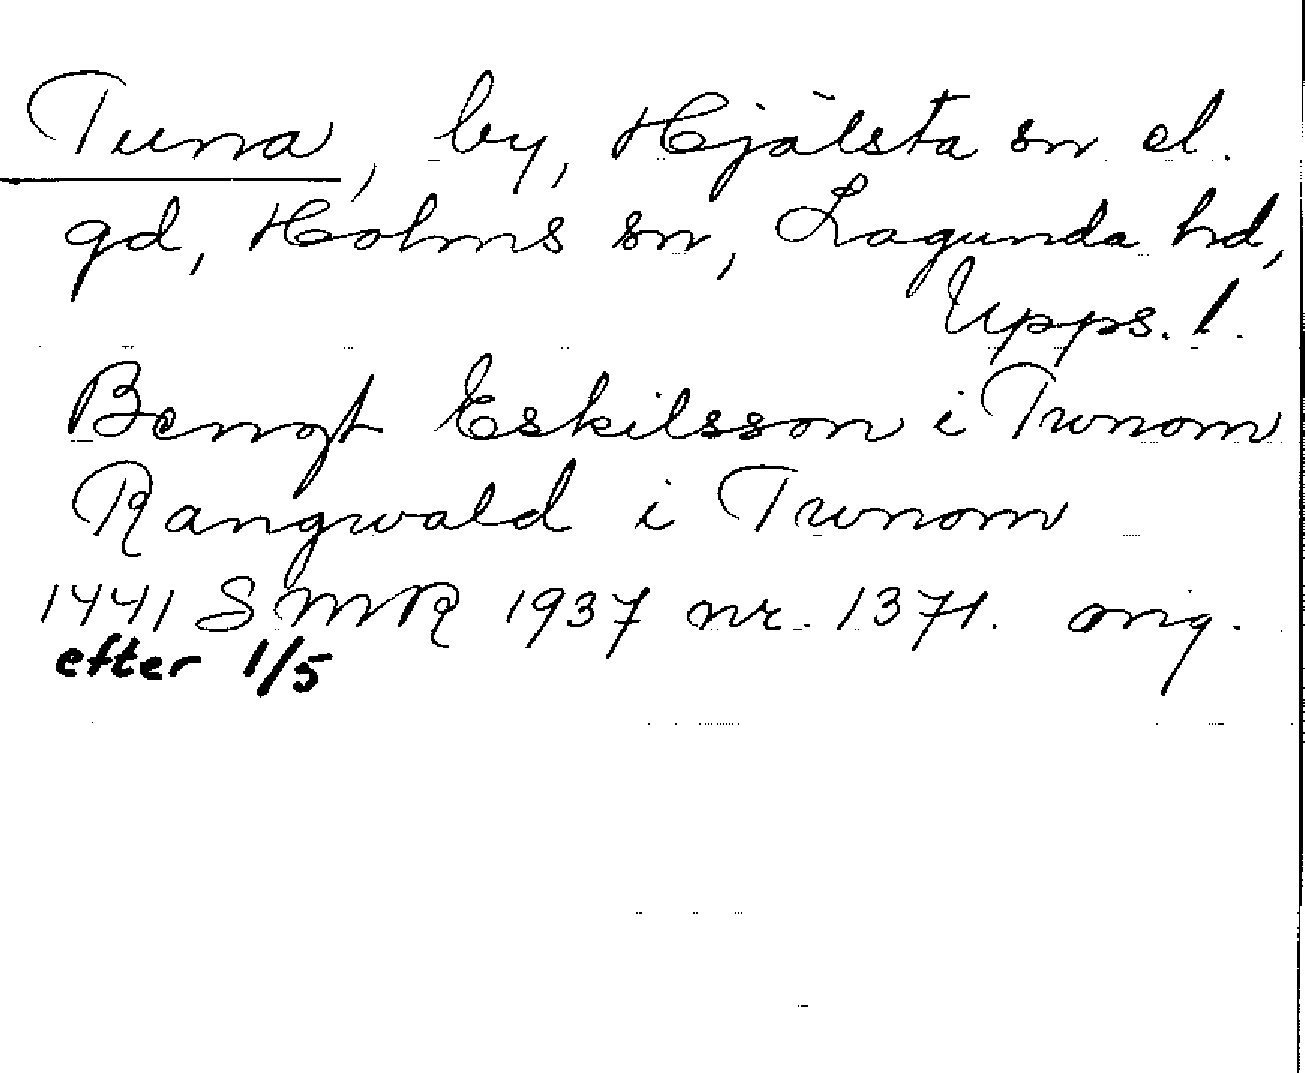 Tuna, by, Hjälsta sn el.
gd, Holms sn, Lagunda hd,
Upps. l.
Bengt Eskilsson i Twnom
Rangwald i Twnom
1441 SMR 1937 nr. 1371. orig.
efter 1/5